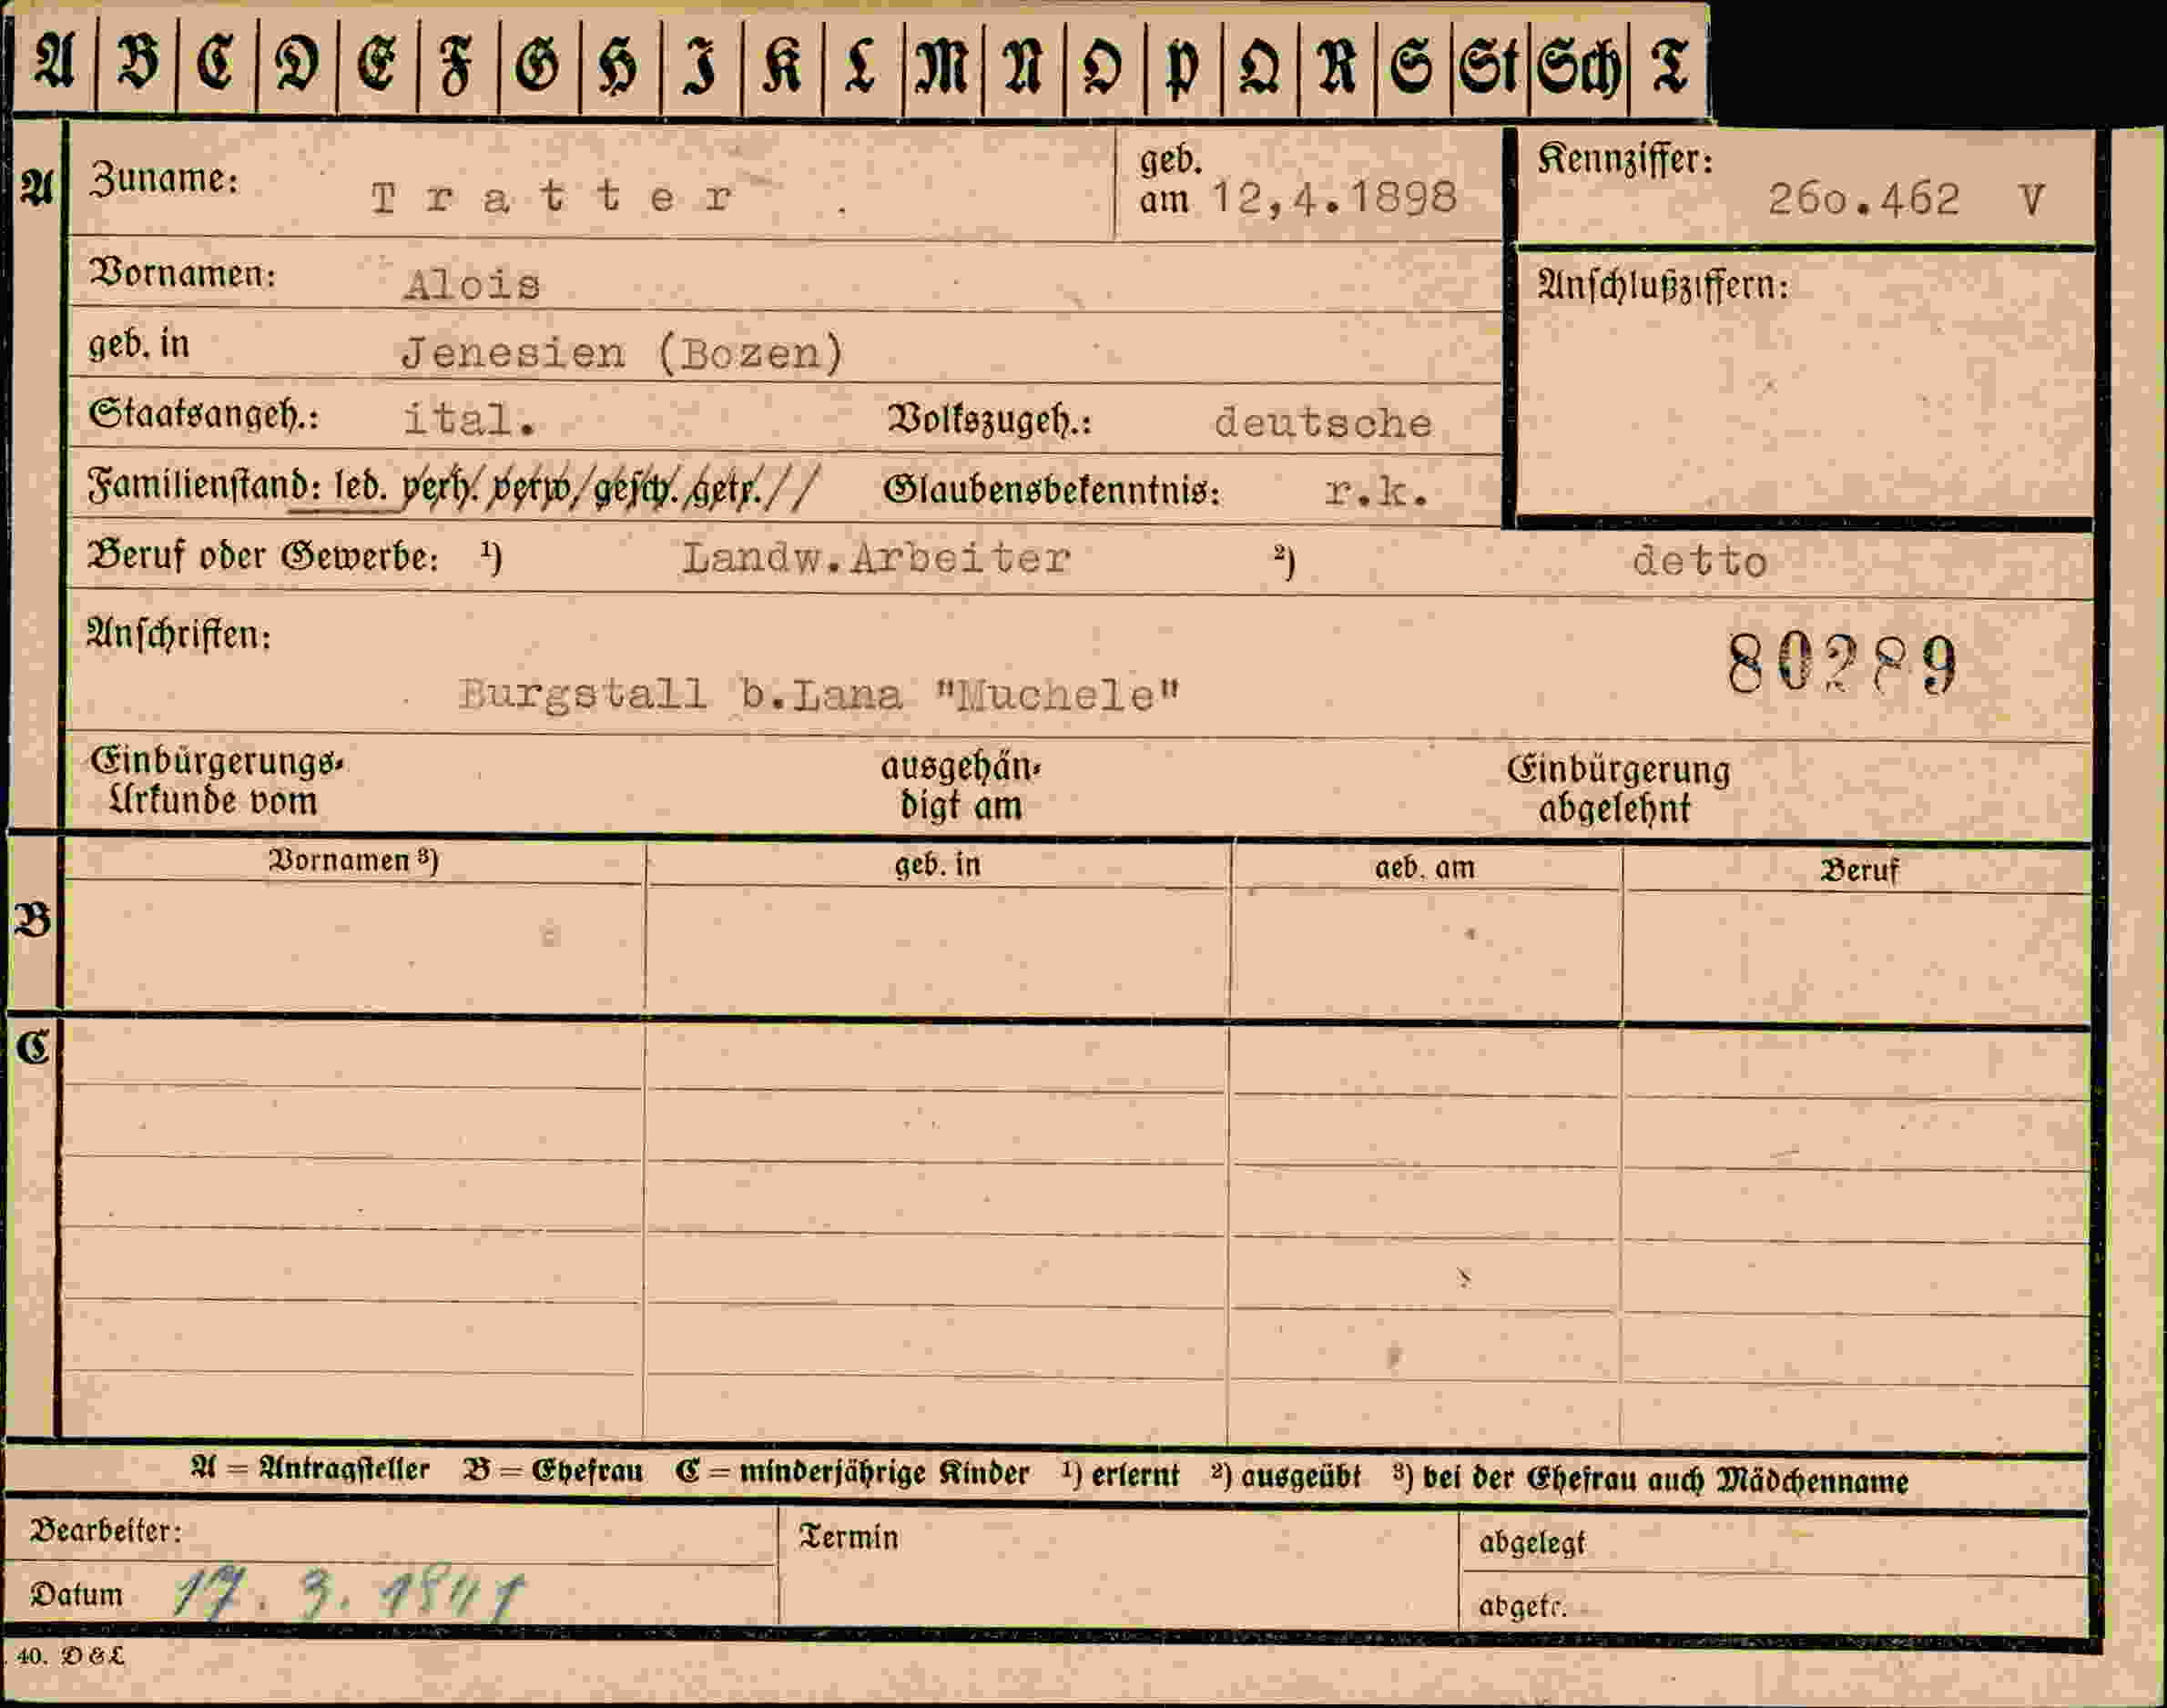 A B C D E F G H I K L M N O P Q R S St Sch T
A Zuname: Tratter geb. am 12,4.1898 Kennziffer: 26o.462 V
Vornamen: Alois Anschlußziffern:
geb. in Jenesien (Bozen)
Staatsangeh.: ital. Volkszugeh.: deutsche
Familienstand: led. verh. verw. gesch. getr. Glaubensbekenntnis: r.k.
Beruf oder Gewerbe: 1) Landw.Arbeiter 2) detto
Anschriften: 80289
Burgstall b.Lana "Muchele"
Einbürgerungs- ausgehän- Einbürgerung
Urkunde vom digt am abgelehnt
Vornamen 3) geb. in geb. am Beruf
B
C
A = Antragsteller B = Ehefrau C = minderjährige Kinder 1) erlernt 2) ausgeübt 3) bei der Ehefrau auch Mädchenname
Bearbeiter: Termin abgelegt
Datum 17. 3. 1941 abgetr.
40. D & L